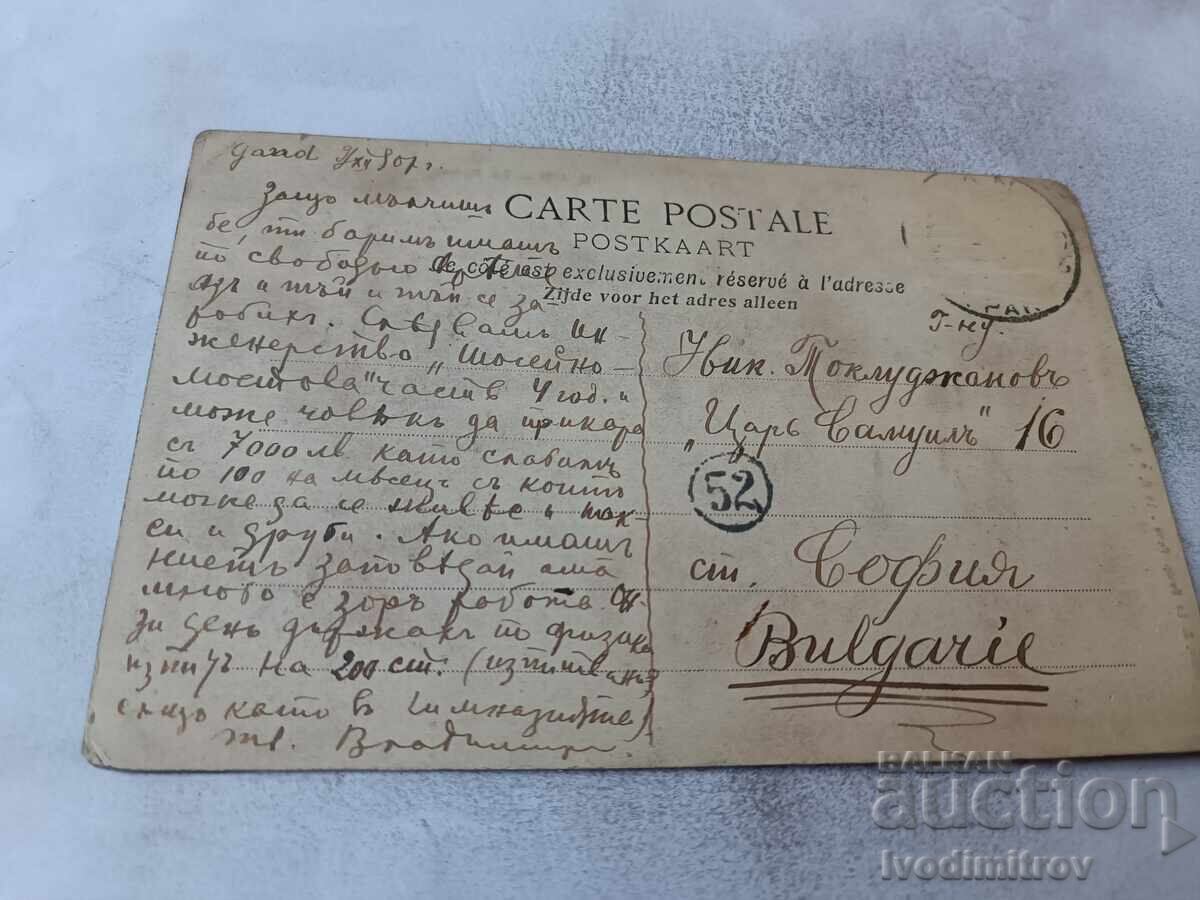 Gand 9/XI 907 г.
Защо мълчишъ
бе, ти баримъ имашъ
по свободно
азъ и тъй и тъй се за-
робихъ. Слѣдвамъ ин-
женерство „Шосейно-
мостова" частъ 4 год. и
може човѣкъ да прикара
съ 7000 лв. като слабитъ
по 100 на мѣсецъ съ които
може да се живѣе и
си и други. Ако имашъ
нѣщъ заповѣдай ама
много е зоръ работа.
зи день държахъ по физика
изпитъ на 200 ст. (изпитвания
сѫщо като въ Гимназиите)
тв. Владимиръ.
CARTE POSTALE
POSTKAART
Ce côté est exclusivement réservé à l'adresse
Zijde voor het adres alleen
Г-ну.
Увик. Токлуджановъ
„Царь Самуилъ" 16
52
ст. София
Bulgarie
BALISAN
auction
Ivodimitrov